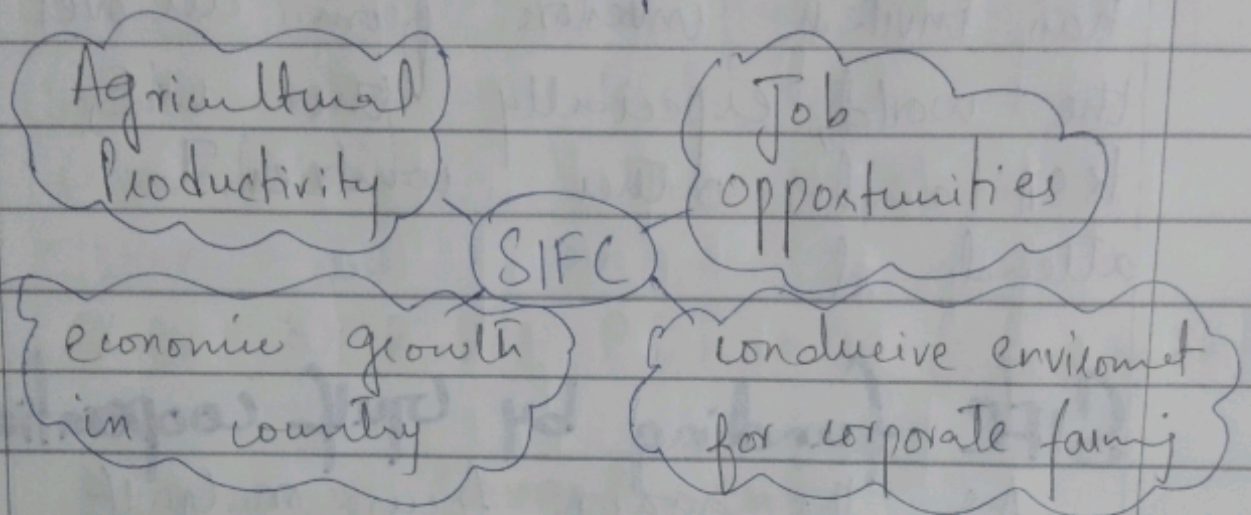 Agricultural
Productivity
Job
opportunities
SIFC
economic growth
in country
conducive enviromet
for corporate farming